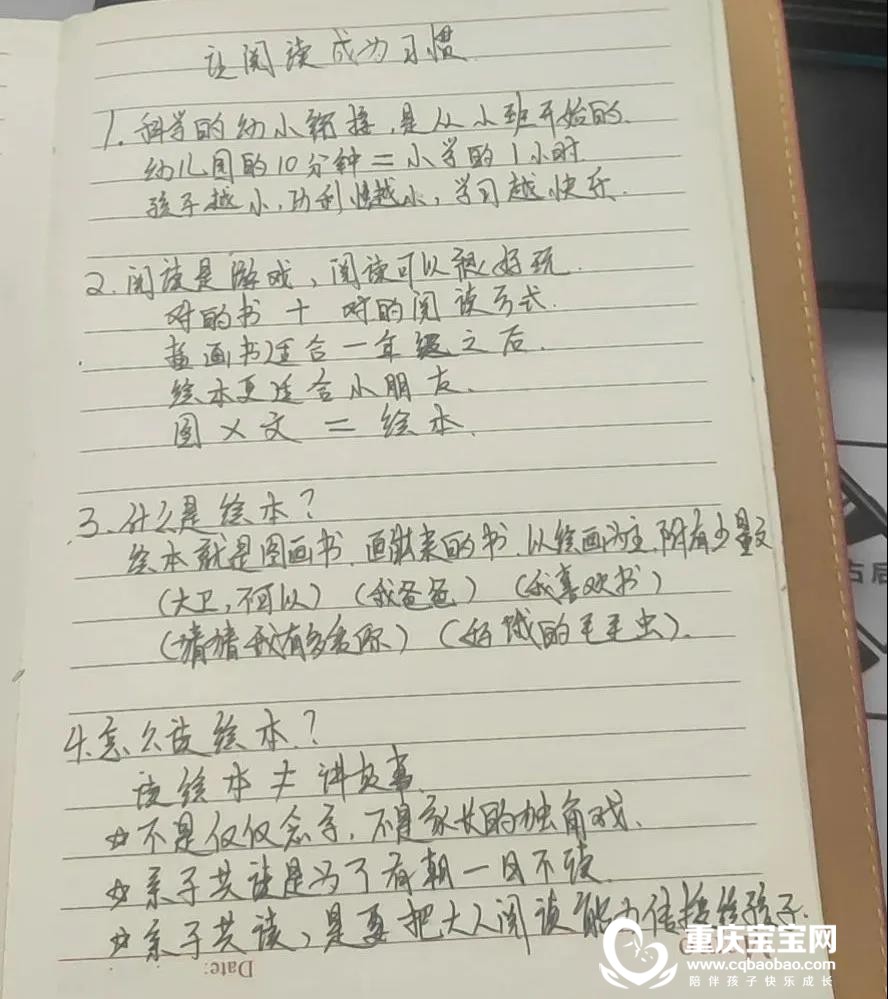 让阅读成为习惯
1. 科学的幼小衔接,是从小班开始的.
幼儿园的10分钟=小学的1小时
孩子越小,功利性越小,学习越快乐.
2. 阅读是游戏,阅读可以很好玩.
对的书 + 对的阅读方式.
插画书适合一年级之后.
绘本更适合小朋友.
图×文 = 绘本.
3. 什么是绘本?
绘本就是图画书,画出来的书.以绘画为主,附有少量文
(大卫,不可以)(我爸爸)(我喜欢书)
(猜猜我有多爱你)(好饿的毛毛虫).
4. 怎么读绘本?
读绘本 ≠ 讲故事.
☆不是仅仅念字,不是家长的独角戏.
☆亲子共读是为了有朝一日不读.
☆亲子共读,是要把大人阅读能力传接给孩子.
Date:
重庆宝宝网
www.cqbaobao.com
陪伴孩子快乐成长